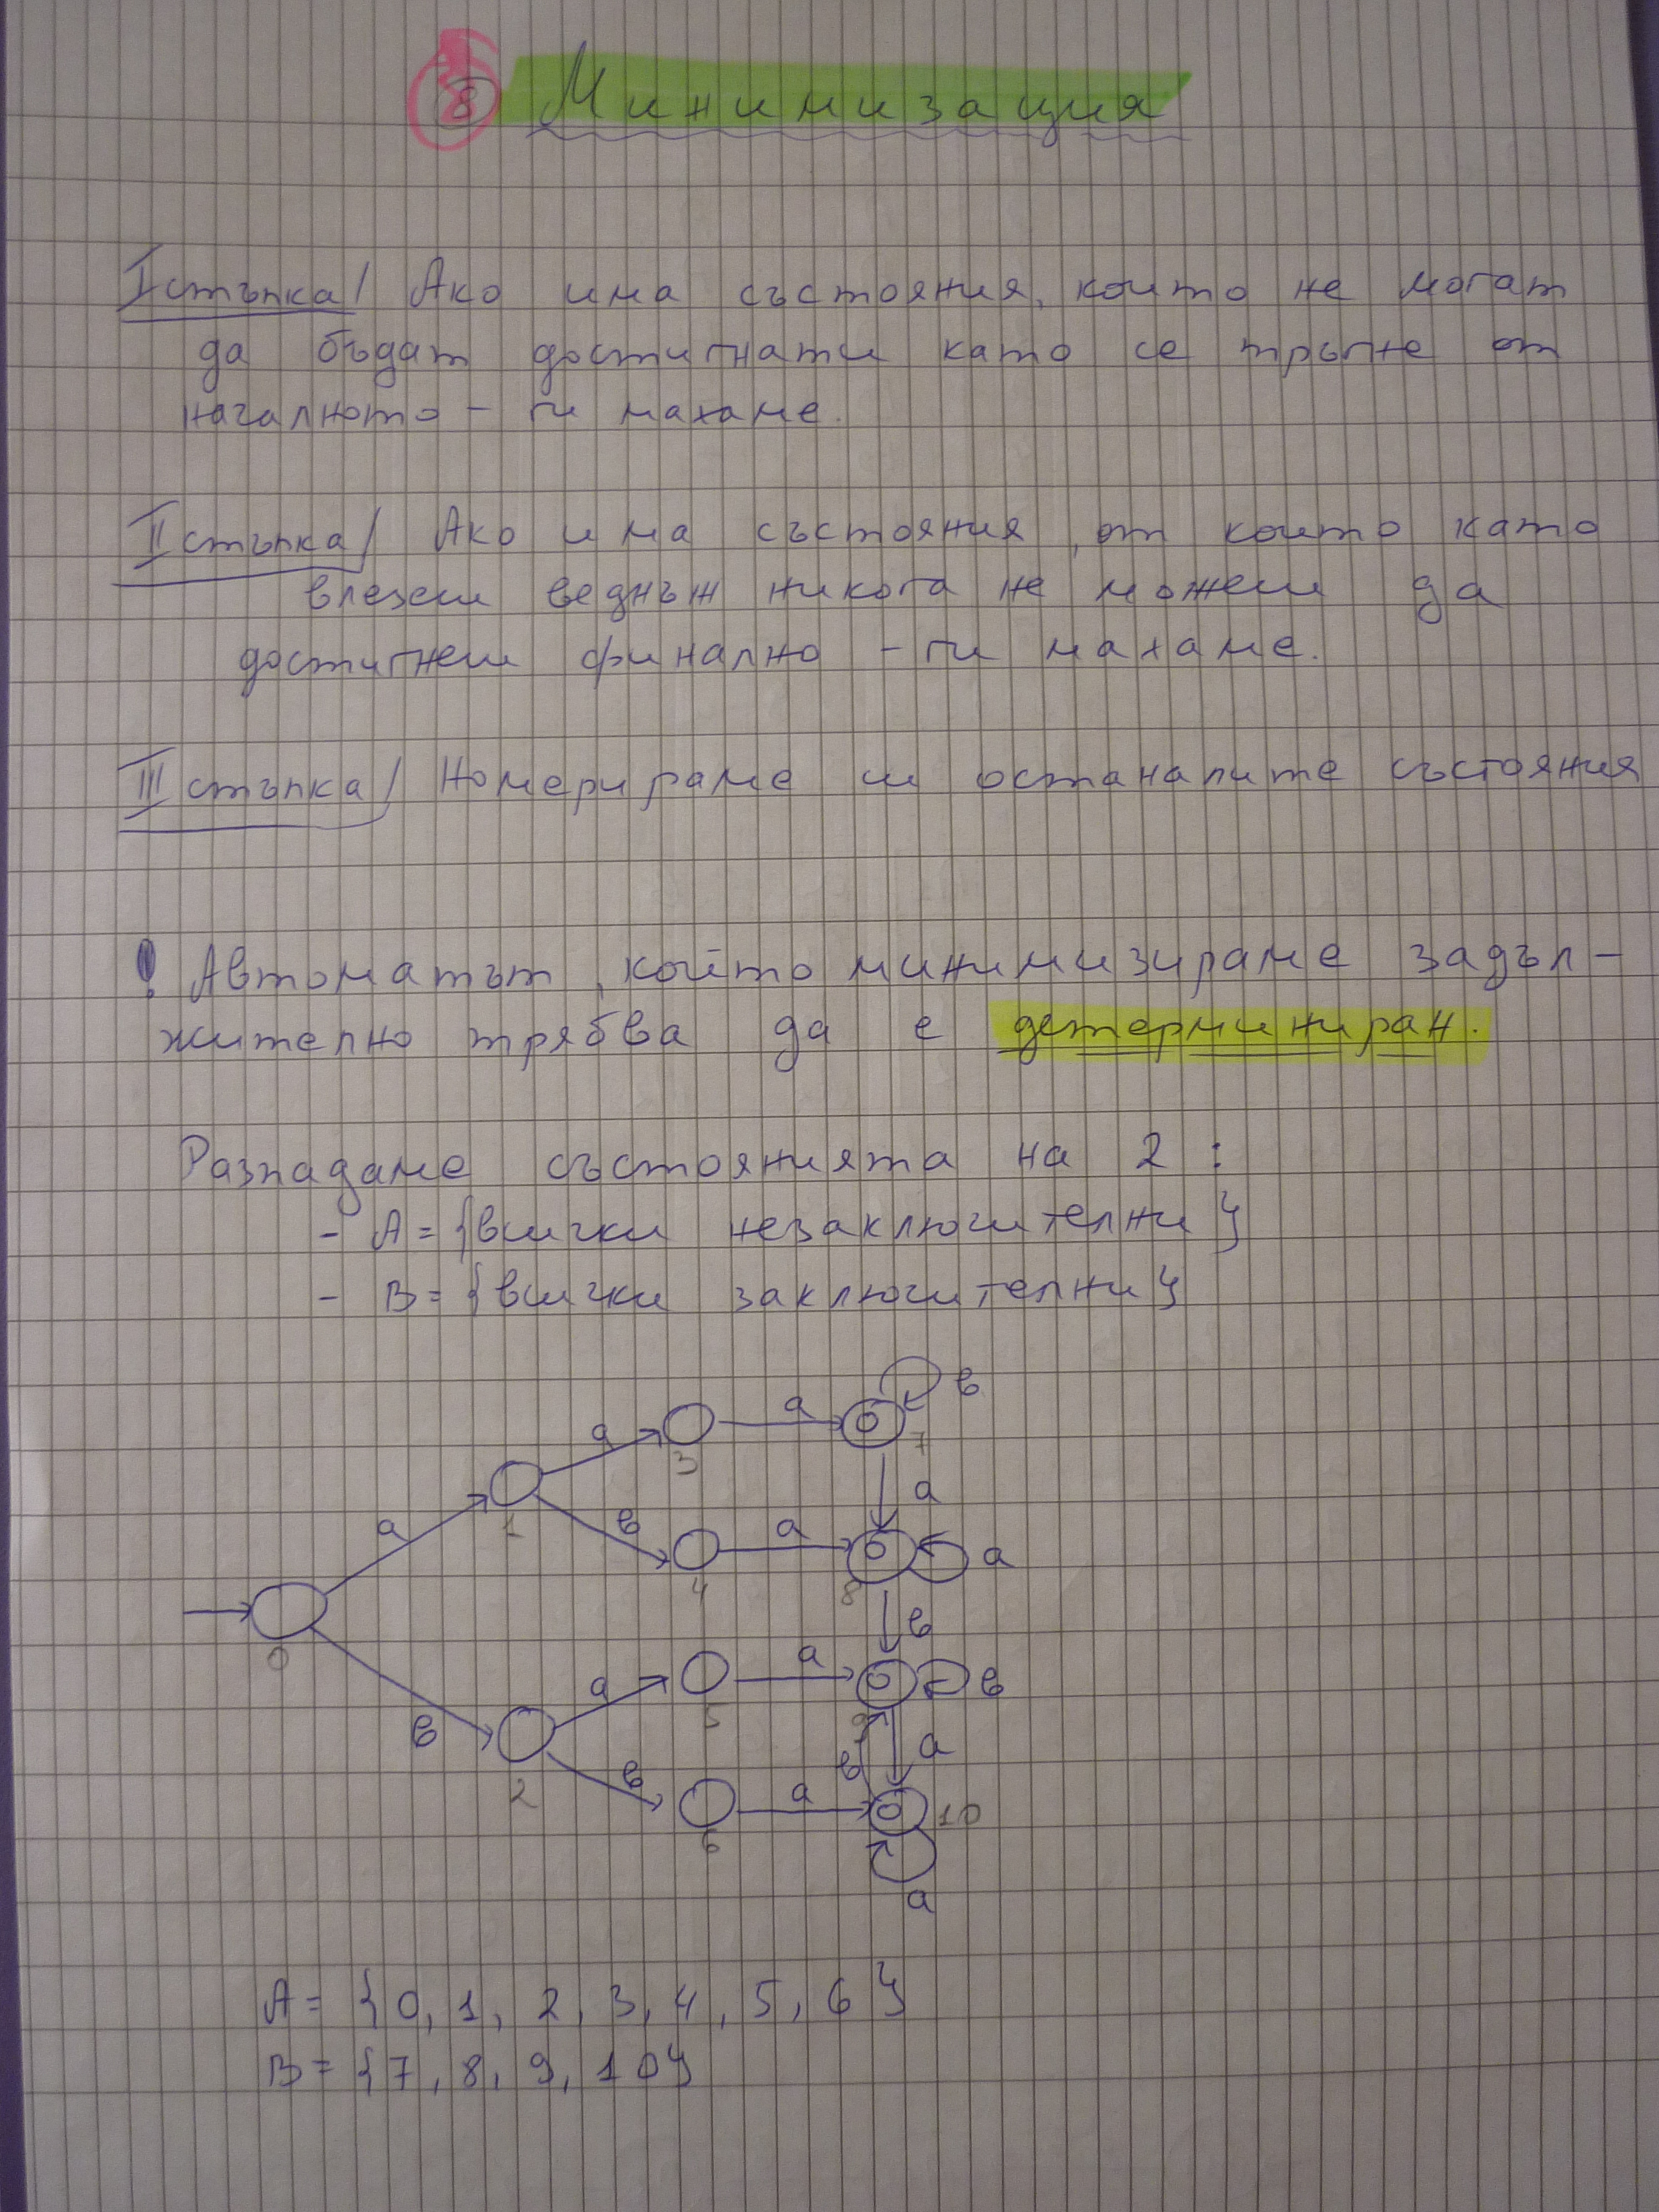 8 Минимизация
I стъпка/ Ако има състояния, които не могат
да бъдат достигнати като се тръгне от
началното – ги махаме.
II стъпка/ Ако има състояния, от които като
влезеш веднъж никога не можеш да
достигнеш финално – ги махаме.
III стъпка/ Номерираме си останалите състояния
! Автоматът, който минимизираме задъл-
жително трябва да е детерминиран.
Разпадаме състоянията на 2 :
- A = {всички незаключителни}
- B = {всички заключителни}
в
a a 7
3
a
a 1 в a a
4 8
0 в
a a в
5 9
в
2 в a в a
6 10
a
A = {0, 1, 2, 3, 4, 5, 6}
B = {7, 8, 9, 10}